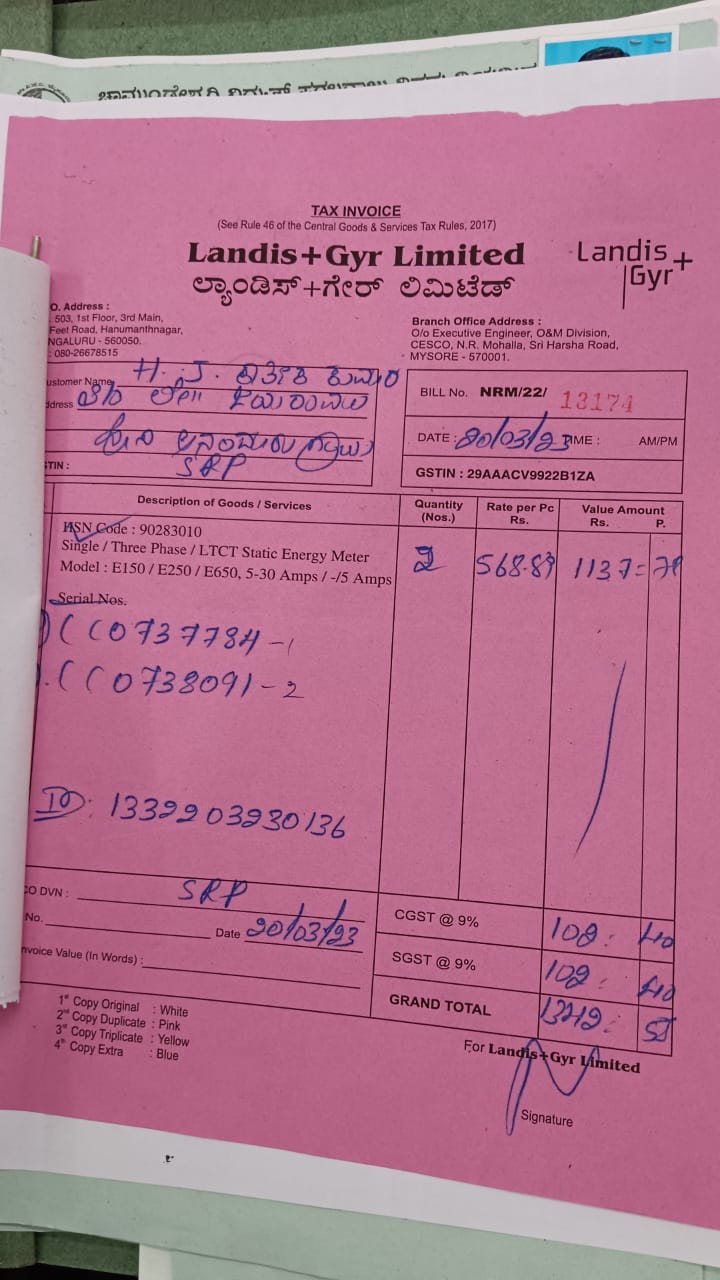 TAX INVOICE
(See Rule 46 of the Central Goods & Services Tax Rules, 2017)
Landis+Gyr Limited
Landis+
Gyr
ಲ್ಯಾಂಡಿಸ್+ಗೇರ್ ಲಿಮಿಟೆಡ್
O. Address :
503, 1st Floor, 3rd Main,
Feet Road, Hanumanthnagar,
NGALURU - 560050.
: 080-26678515
Branch Office Address :
O/o Executive Engineer, O&M Division,
CESCO, N.R. Mohalla, Sri Harsha Road,
MYSORE - 570001.
ustomer Name H. J. ಕುಮಾರ
ddress
TIN : SRP
BILL No. NRM/22/ 13174
DATE : 20/03/23 TIME : AM/PM
GSTIN : 29AAACV9922B1ZA
Description of Goods / Services
Quantity (Nos.)
Rate per Pc Rs.
Value Amount Rs. P.
HSN Code : 90283010
Single / Three Phase / LTCT Static Energy Meter
Model : E150 / E250 / E650, 5-30 Amps / -/5 Amps
2 568.89 1137=78
Serial Nos.
CC0737784-1
CC0738091-2
ID: 1332203230136
CO DVN : SRP
No. Date 20/03/23
nvoice Value (In Words) :
CGST @ 9% 102 : 40
SGST @ 9% 102 : 40
GRAND TOTAL
1st Copy Original : White
2nd Copy Duplicate : Pink
3rd Copy Triplicate : Yellow
4th Copy Extra : Blue
For Landis+Gyr Limited
Signature